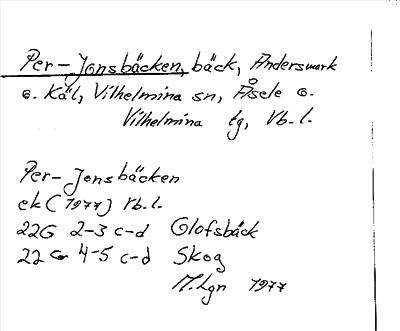 Per-Jonsbäcken, bäck, Andersmark
o. Käl, Vilhelmina sn, Åsele o.
Vilhelmina tg, Vb.l.
Per-Jonsbäcken
ek (1977) Vb.l.
22G 2-3 c-d Olofsbäck
22G 4-5 c-d Skog
M.Lgn 1977